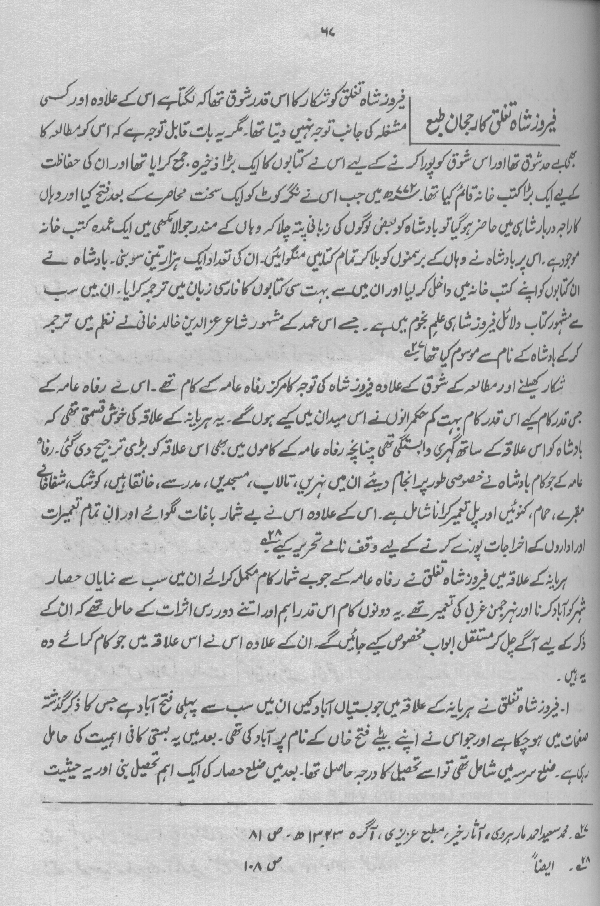 ۶۷
فیروز شاہ تغلق کا رجحان طبع
فیروز شاہ تغلق کو شکار کا اس قدر شوق تھا کہ لگتا ہے اس کے علاوہ اور کسی
مشغلہ کی جانب توجہ نہیں دیتا تھا۔ مگر یہ بات قابل توجہ ہے کہ اس کو مطالعہ کا
بھی بے حد شوق تھا اور اس شوق کو پورا کرنے کے لیے اس نے کتابوں کا ایک بڑا ذخیرہ جمع کرایا تھا اور ان کی حفاظت
کے لیے ایک بڑا کتب خانہ قائم کیا تھا۔ ۷۷۲ھ میں جب اس نے نگر کوٹ کو ایک سخت محاصرے کے بعد فتح کیا اور وہاں
کا راجہ دربار شاہی میں حاضر ہو گیا تو بادشاہ کو بعض لوگوں کی زبانی پتہ چلا کہ وہاں کے مندر جوالا مکھی میں ایک عمدہ کتب خانہ
موجود ہے۔ اس پر بادشاہ نے وہاں کے برہمنوں کو بلا کر تمام کتابیں منگوائیں۔ ان کی تعداد ایک ہزار تین سو تھی۔ بادشاہ نے
ان کتابوں کو اپنے کتب خانہ میں داخل کر لیا اور ان میں سے بہت سی کتابوں کا فارسی زبان میں ترجمہ کرایا۔ ان میں سب
سے مشہور کتاب دلائل فیروز شاہی علم نجوم میں ہے۔ جسے اس عہد کے مشہور شاعر عزالدین خالد خانی نے نظم میں ترجمہ
کر کے بادشاہ کے نام سے موسوم کیا تھا۲۷؎
شکار کھیلنے اور مطالعہ کے شوق کے علاوہ فیروز شاہ کی توجہ کا مرکز رفاہ عامہ کے کام تھے۔ اس نے رفاہ عامہ کے
جس قدر کام کیے اس قدر کام بہت کم حکمرانوں نے اس میدان میں کیے ہوں گے۔ یہ ہریانہ کے علاقہ کی خوش قسمتی تھی کہ
بادشاہ کو اس علاقہ کے ساتھ گہری وابستگی تھی چنانچہ رفاہ عامہ کے کاموں میں بھی اس علاقہ کو بڑی ترجیح دی گئی۔ رفاہ
عامہ کے جو کام بادشاہ نے خصوصی طور پر انجام دیئے ان میں نہریں، تالاب، مسجدیں، مدرسے، خانقاہیں، کوشک، شفاخانے
مقبرے، حمام، کنوئیں اور پل تعمیر کرانا شامل ہے۔ اس کے علاوہ اس نے بے شمار باغات لگوائے اور ان تمام تعمیرات
اور اداروں کے اخراجات پورے کرنے کے لیے وقف نامے تحریر کیے۲۸؎
ہریانہ کے علاقہ میں فیروز شاہ تغلق نے رفاہ عامہ کے جو بے شمار کام مکمل کرائے ان میں سب سے نمایاں حصار
شہر کو آباد کرنا اور نہر جمن غربی کی تعمیر تھے۔ یہ دونوں کام اس قدر اہم اور اتنے دور رس اثرات کے حامل تھے کہ ان کے
ذکر کے لیے آگے چل کر مستقل ابواب مخصوص کیے جائیں گے۔ ان کے علاوہ اس نے اس علاقہ میں جو کام کرائے وہ
یہ ہیں۔
۱۔ فیروز شاہ تغلق نے ہریانہ کے علاقہ میں جو بستیاں آباد کیں ان میں سب سے پہلی فتح آباد ہے جس کا ذکر گذشتہ
صفحات میں ہو چکا ہے اور جو اس نے اپنے بیٹے فتح خاں کے نام پر آباد کی تھی۔ بعد میں یہ بستی کافی اہمیت کی حامل
رہی ہے۔ ضلع سرسہ میں شامل تھی تو اسے تحصیل کا درجہ حاصل تھا۔ بعد میں ضلع حصار کی ایک اہم تحصیل بنی اور یہ حیثیت
۲۷؎۔ محمد سعید احمد مارہروی، آثار خیر، مطبع عزیزی، آگرہ ۱۳۲۳ھ۔ ص ۸۱
۲۸؎۔ ایضاً ص ۱۰۸